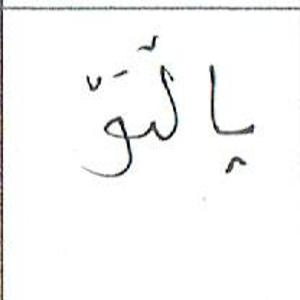 بالتوّ